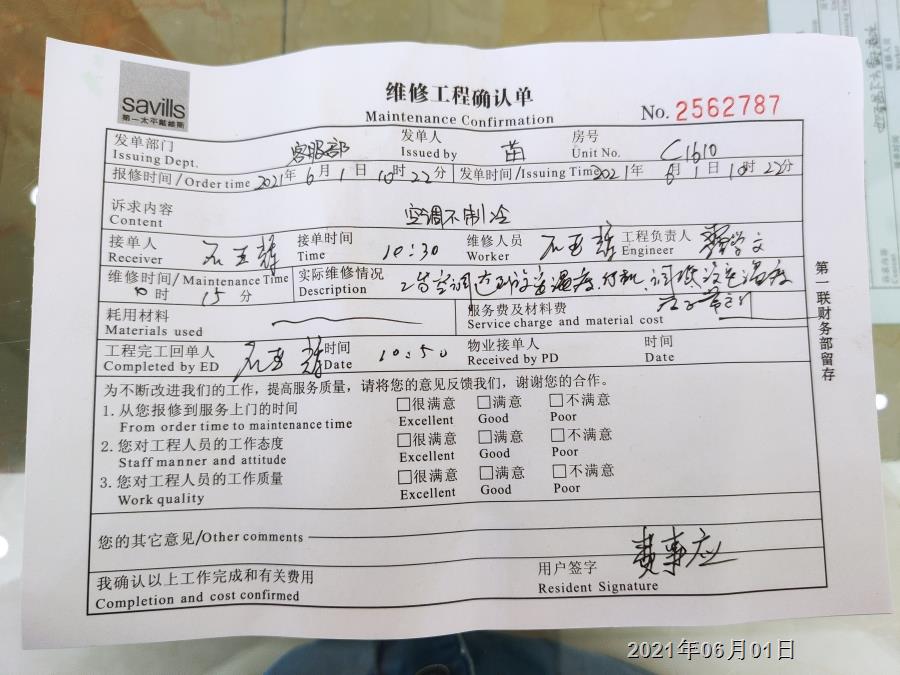 savills
第一太平戴维斯
维修工程确认单
Maintenance Confirmation
No. 2562787
发单部门 客服部 发单人 苗 房号 C1610
Issuing Dept. Issued by Unit No.
报修时间/Order time 2021年6月1日10时22分 发单时间/Issuing Time 2021年6月1日10时22分
诉求内容 空调不制冷
Content
接单人 接单时间 10:30 维修人员 工程负责人
Receiver Time Worker Engineer
维修时间/Maintenance Time 实际维修情况
时15分 Description
耗用材料 服务费及材料费
Materials used Service charge and material cost
工程完工回单人 时间 10:50 物业接单人 时间
Completed by ED Date Received by PD Date
为不断改进我们的工作，提高服务质量，请将您的意见反馈我们，谢谢您的合作。
1. 从您报修到服务上门的时间 □很满意 □满意 □不满意
From order time to maintenance time Excellent Good Poor
2. 您对工程人员的工作态度 □很满意 □满意 □不满意
Staff manner and attitude Excellent Good Poor
3. 您对工程人员的工作质量 □很满意 □满意 □不满意
Work quality Excellent Good Poor
您的其它意见/Other comments
我确认以上工作完成和有关费用 用户签字
Completion and cost confirmed Resident Signature
第一联财务部留存
2021年06月01日